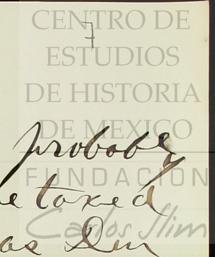 CENTRO DE
7
ESTUDIOS
DE HISTORIA
DE MEXICO
probobey
FUNDACION
etoxed
Carlos Slim
as